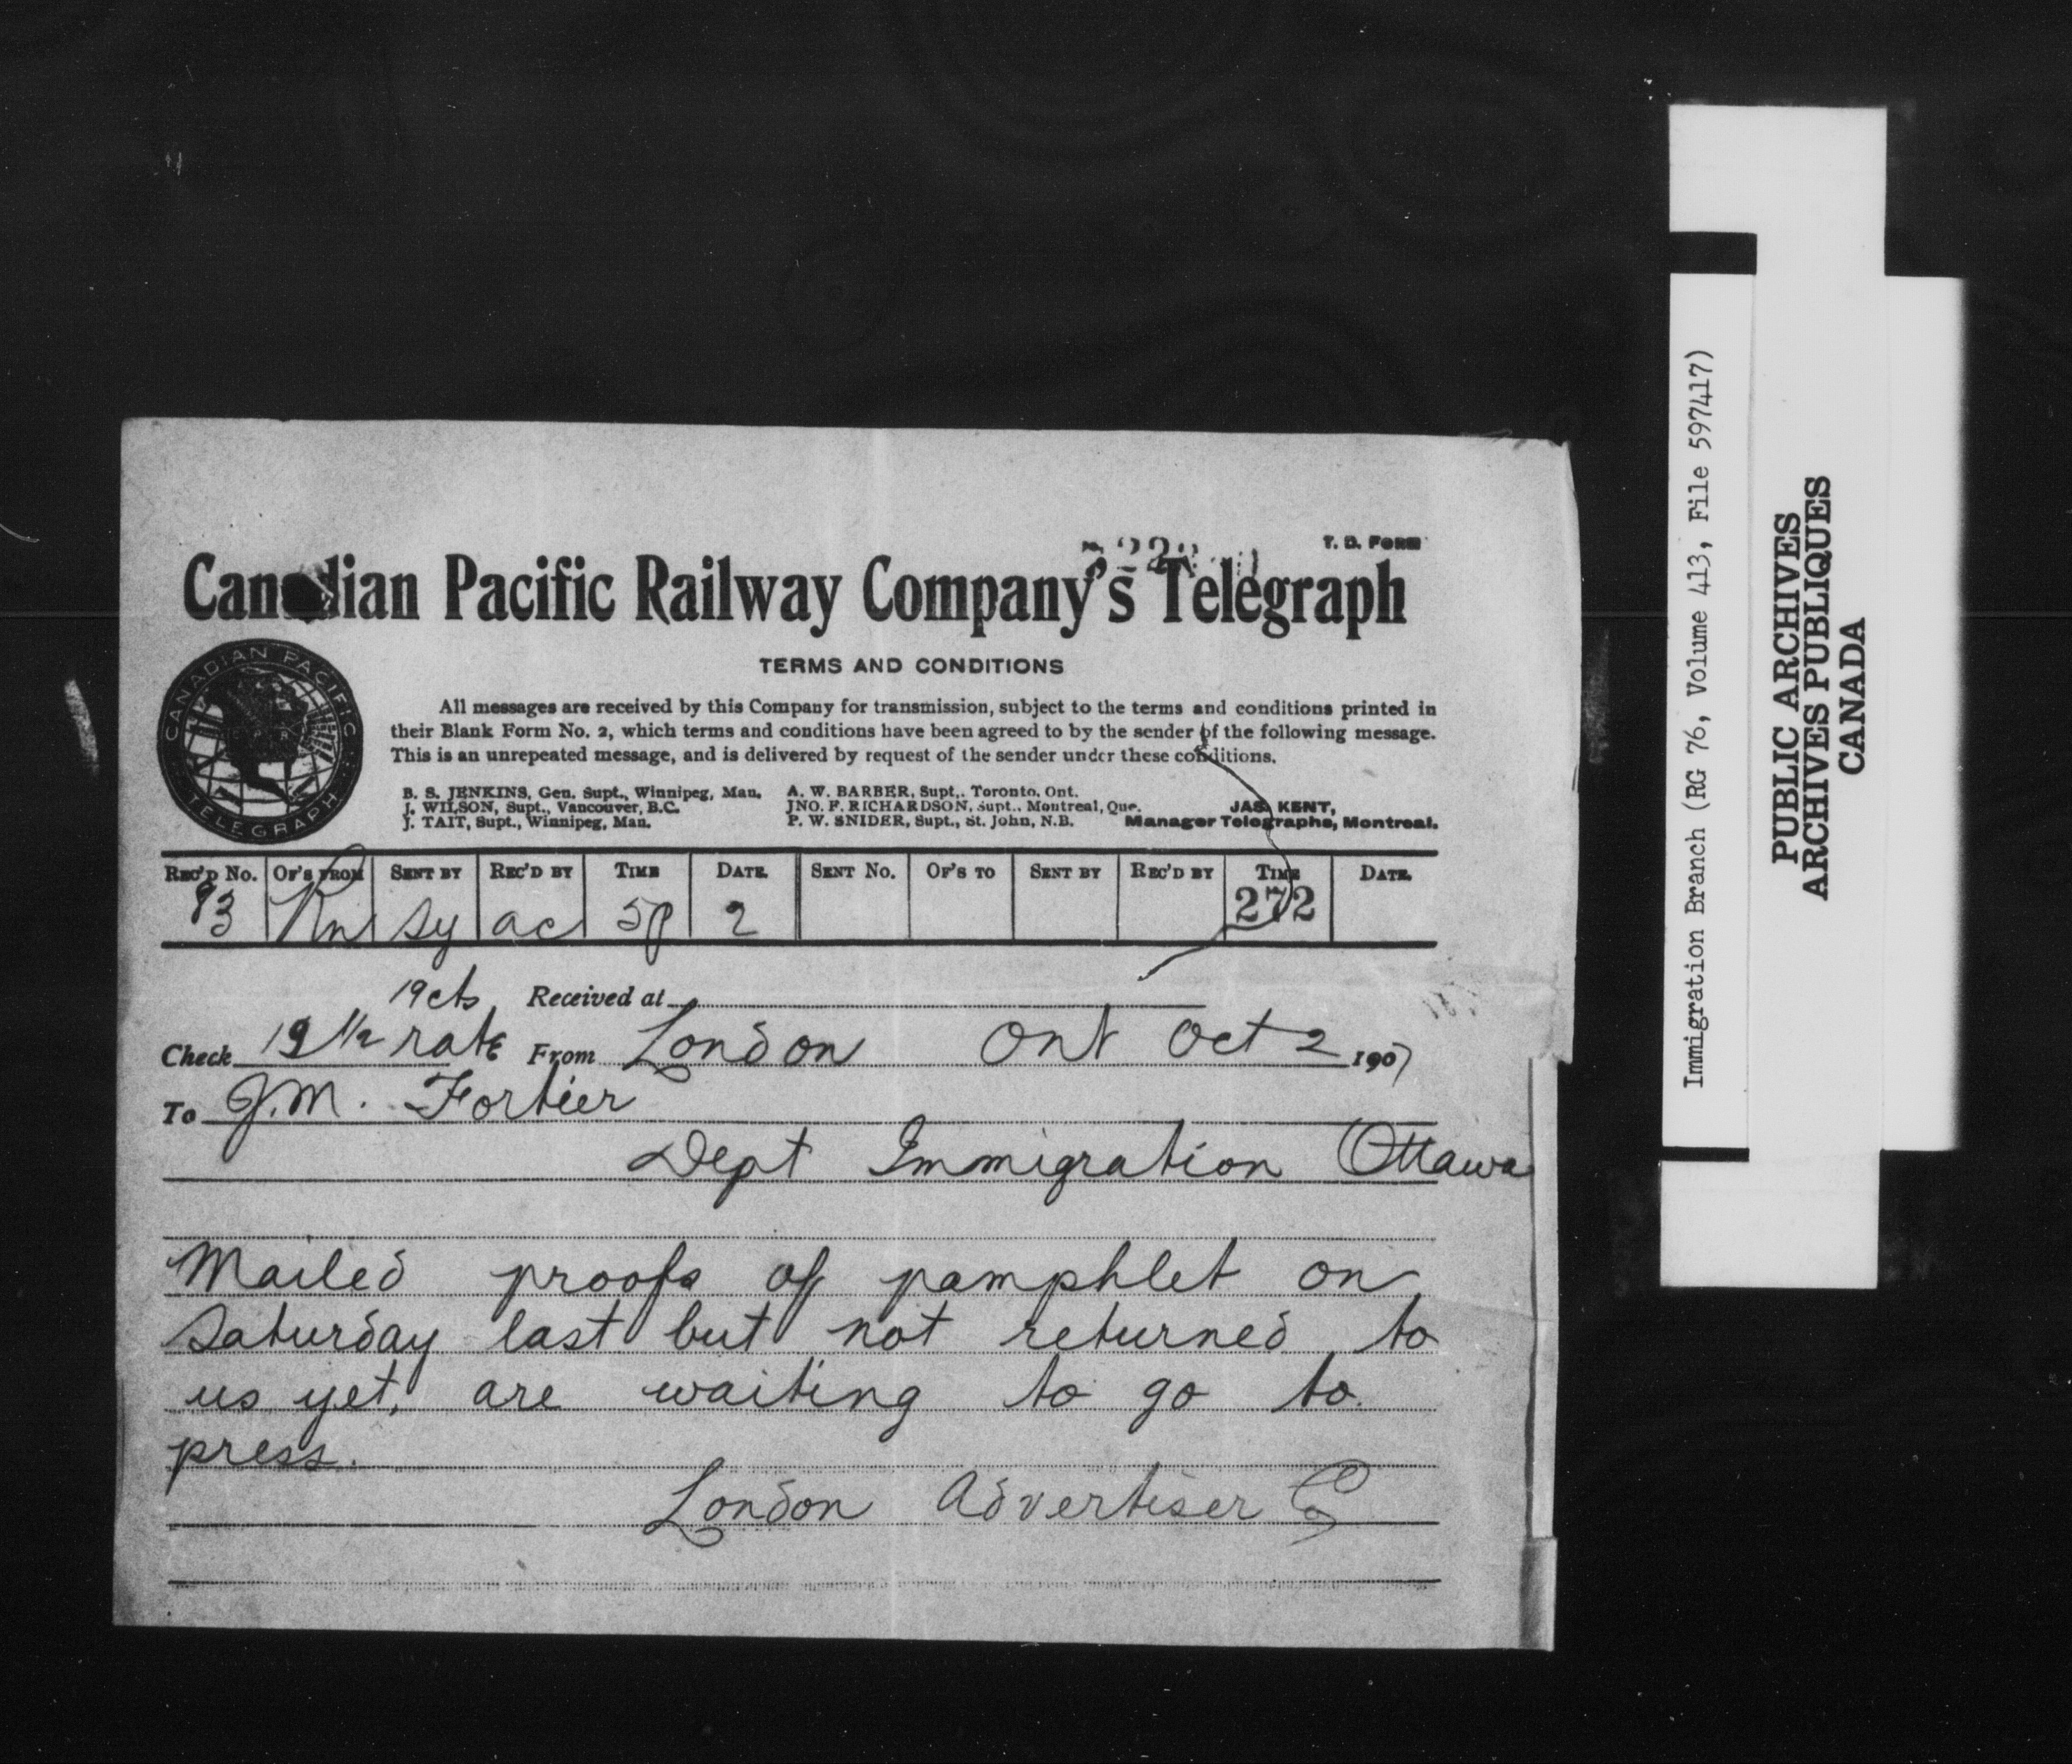 T. D. FORM
Canadian Pacific Railway Company's Telegraph
TERMS AND CONDITIONS
All messages are received by this Company for transmission, subject to the terms and conditions printed in
their Blank Form No. 2, which terms and conditions have been agreed to by the sender of the following message.
This is an unrepeated message, and is delivered by request of the sender under these conditions.
CANADIAN PACIFIC
C. P. R.
TELEGRAPH
B. S. JENKINS, Gen. Supt., Winnipeg, Man.
J. WILSON, Supt., Vancouver, B.C.
J. TAIT, Supt., Winnipeg, Man.
A. W. BARBER, Supt,. Toronto, Ont.
JNO. F. RICHARDSON, Supt., Montreal, Que.
P. W. SNIDER, Supt., St. John, N.B.
JAS. KENT,
Manager Telegraphs, Montreal.
REC'D No. OF'S FROM SENT BY REC'D BY TIME DATE. SENT No. OF'S TO SENT BY REC'D BY TIME DATE.
93 Rn Sy ac 5p 2 272
19cts Received at
Check 19 1/2 rate From London Ont Oct 2 1907
To J.M. Fortier
Dept Immigration Ottawa
Mailed proofs of pamphlet on
Saturday last but not returned to
us yet, are waiting to go to
press.
London Advertiser Co
Immigration Branch (RG 76, Volume 413, File 597417)
PUBLIC ARCHIVES
ARCHIVES PUBLIQUES
CANADA